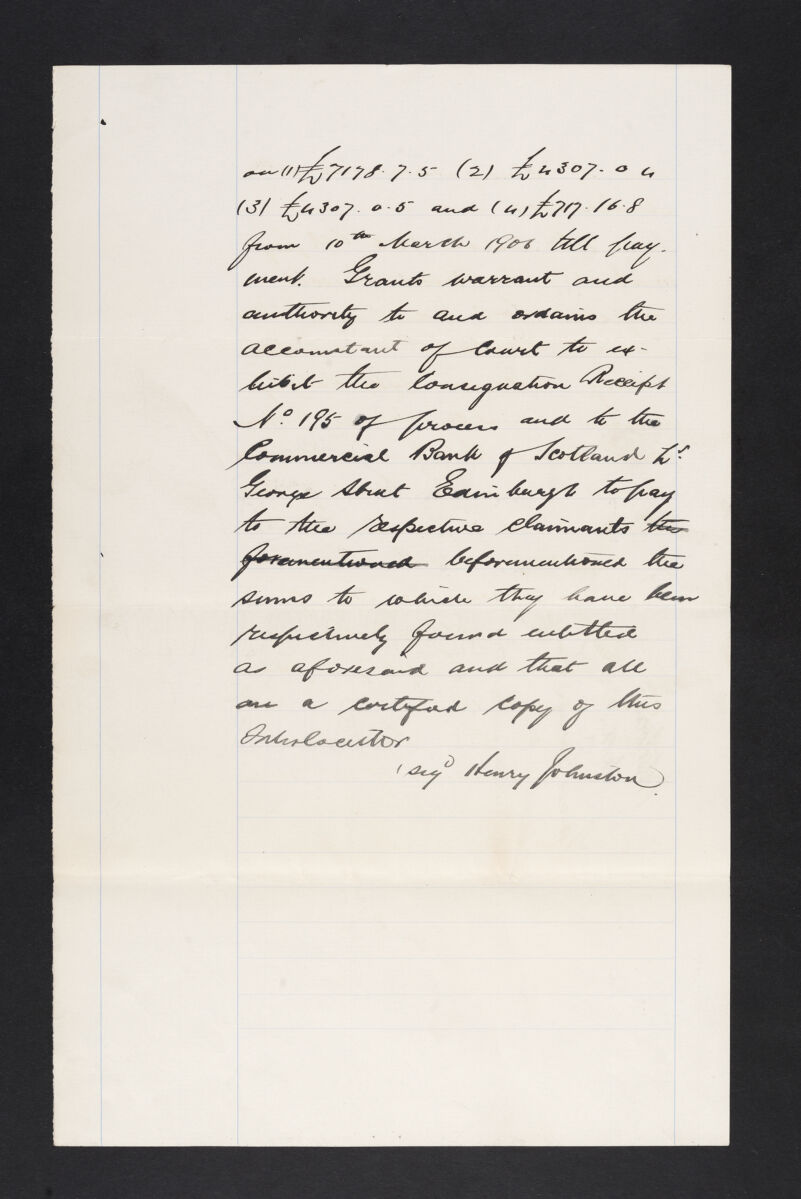 on (1) £7178.7.5 (2) £4307.0.4
(3) £4307.0.5 and (4) £717.16.8
from 10th March 1906 till pay-
ment. Grants warrant and
authority to and ordains the
accountant of Court to ex-
hibit the Consignation Receipt
No. 195 of process and to the
Commercial Bank of Scotland Ld.
George Street Edinburgh to pay
to the respective claimants the
forementioned beforementioned the
sums to which they have been
respectively found entitled
as aforesaid and that all
on a certified copy of this
Interlocutor
(sigd Henry Johnston)